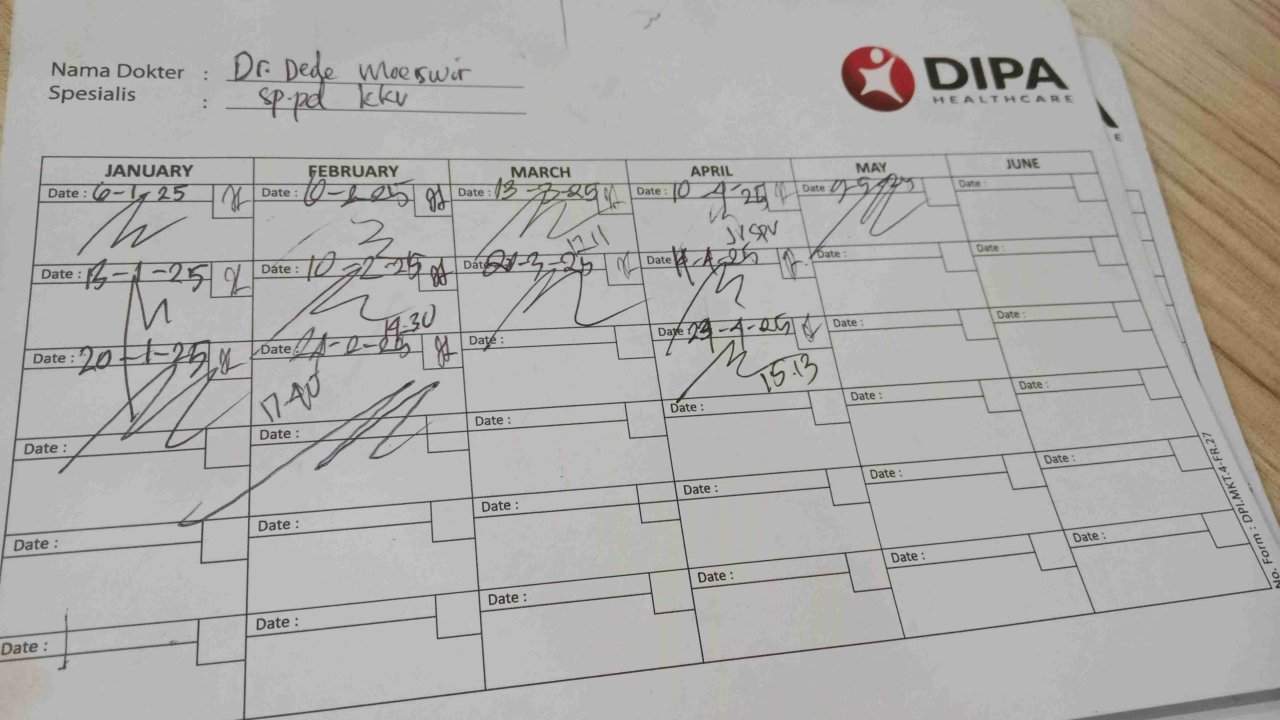 Nama Dokter : Dr. Dede Moerswir
Spesialis : Sp.pd kkv
DIPA
HEALTHCARE
JANUARY FEBRUARY MARCH APRIL MAY JUNE
Date : 6-1-25 Date : Date : 13-3-25 Date : 10-4-25 Date Date :
17.11 JV SPV
Date : 13-1-25 Date : 10-2-25 Date -3-25 Date : -4-25 Date : Date :
14.30
Date : 20-1-25 Date : -2-25 Date : Date 29-4-25 Date : Date :
17.40 15.13
Date : Date : Date : Date : Date : Date :
Date : Date : Date : Date : Date : Date :
Date : Date : Date : Date : Date : Date :
No. Form : DPI.MKT-4-FR.27